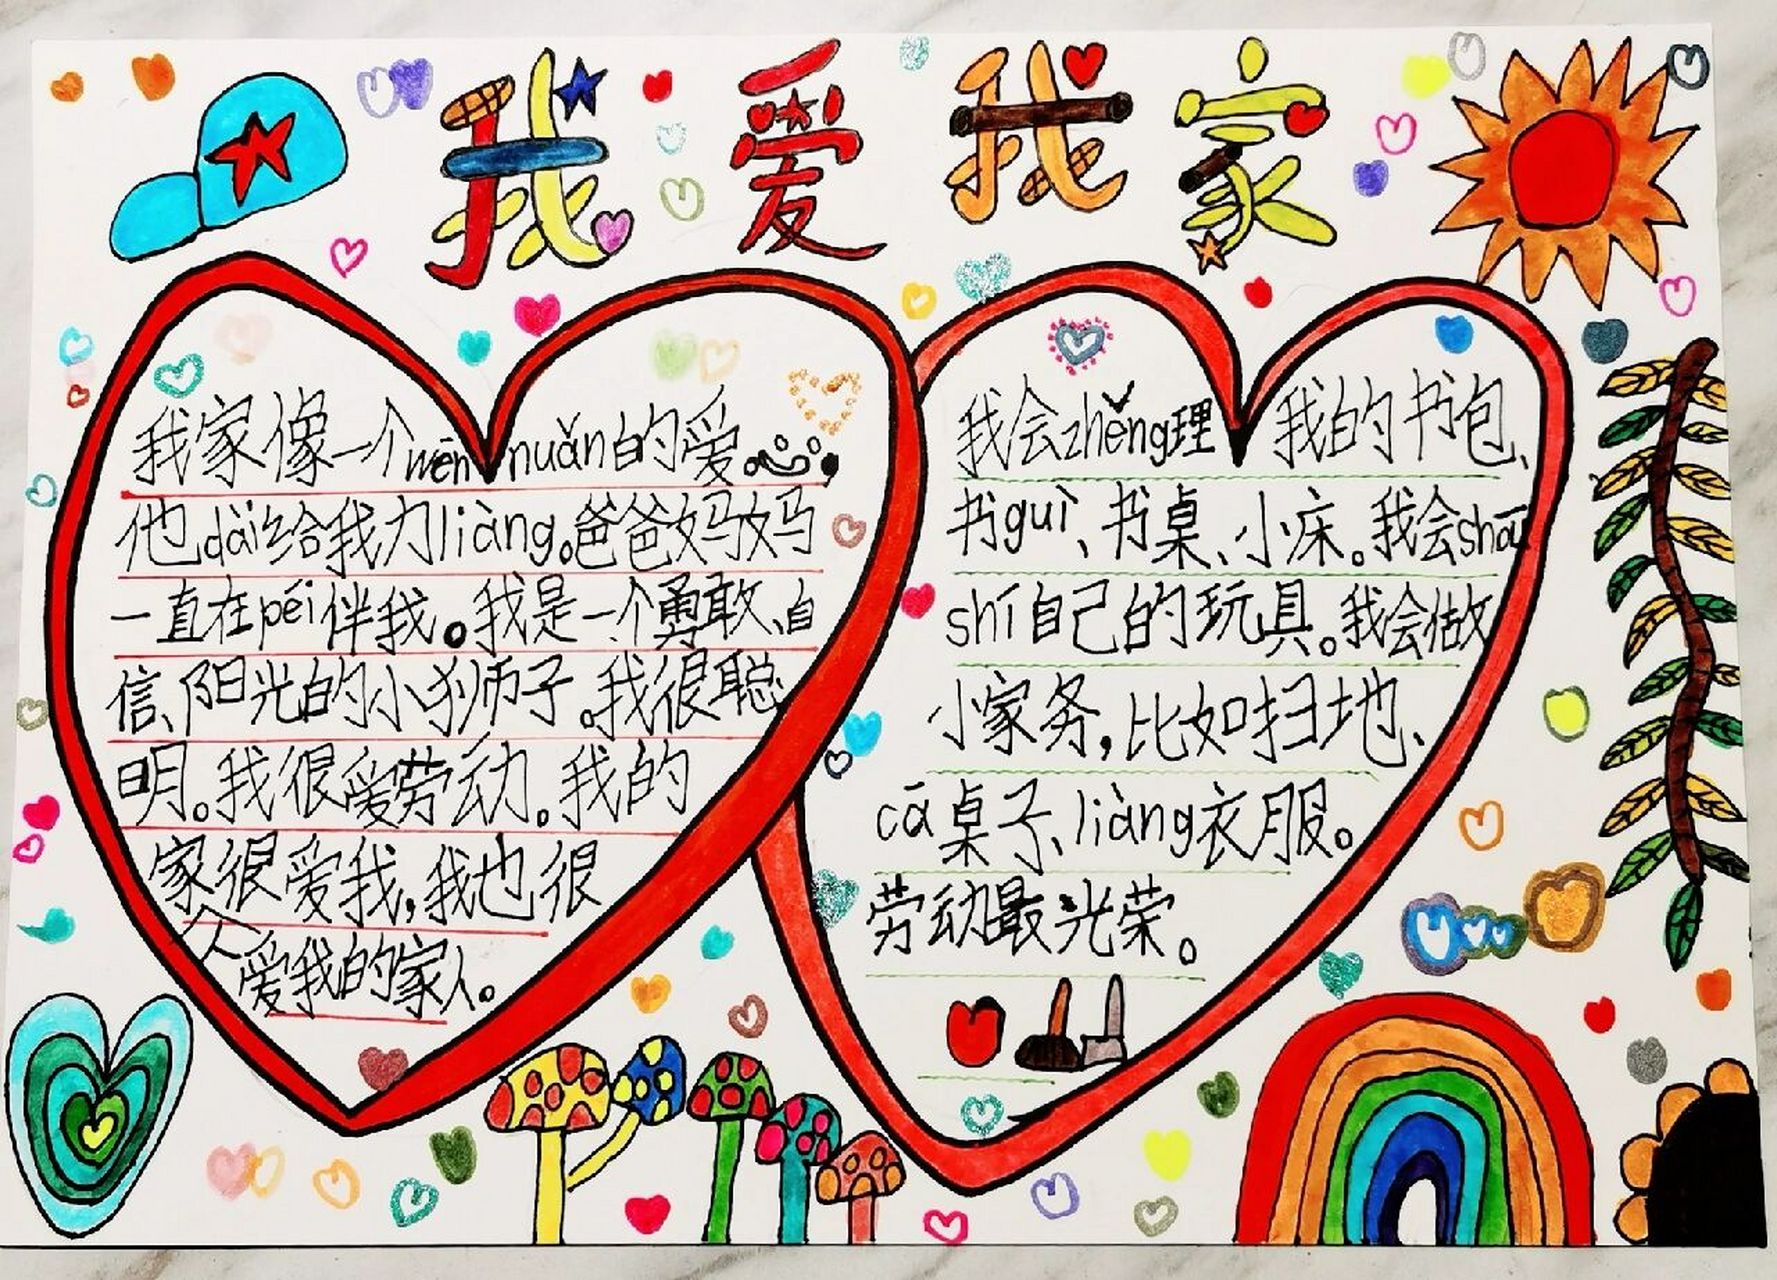 我爱我家
我家像一个wēn nuǎn的爱。
他dài给我力liàng。爸爸妈妈
一直在péi伴我。我是一个勇敢、自
信、阳光的小狮子。我很聪
明。我很爱劳动。我的
家很爱我,我也很
爱我的家人。
我会zhěng理 我的书包、
书guì、书桌、小床。我会shōu
shí自己的玩具。我会做
小家务,比如扫地、
cā桌子、liàng衣服。
劳动最光荣。